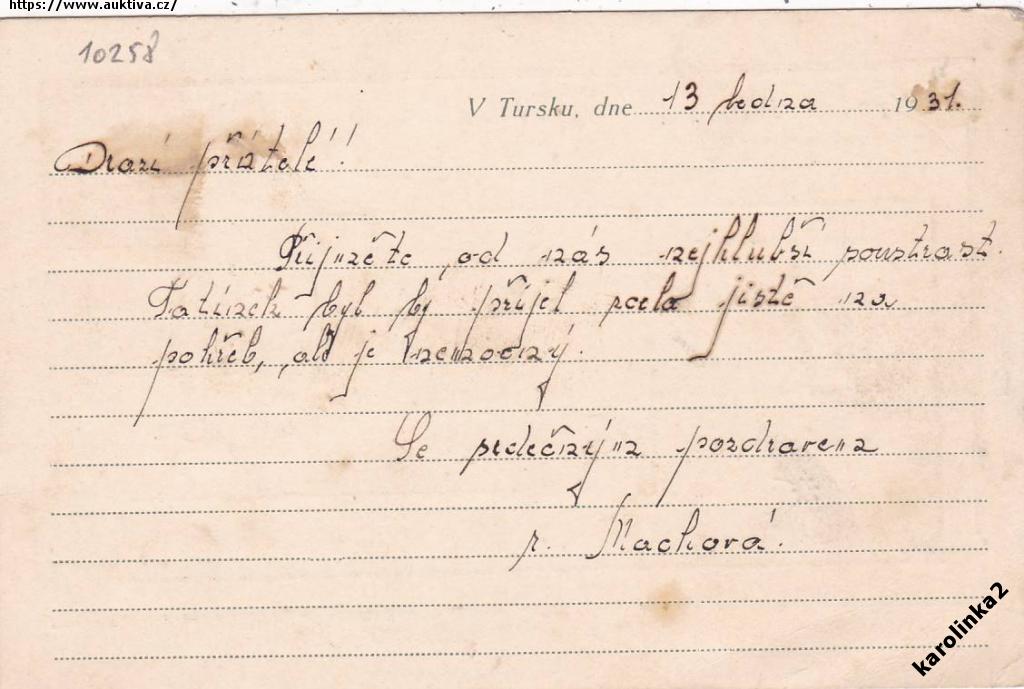 https://www.auktiva.cz/
10258
V Tursku, dne 13 ledna 1931.
Drazí přátelé!
Přijměte, od nás nejhlubší soustrast.
Tatínek byl by přijel zcela jistě na
pohřeb, ale je nemocný.
Se srdečným pozdravem
r. Machová.
karolinka2